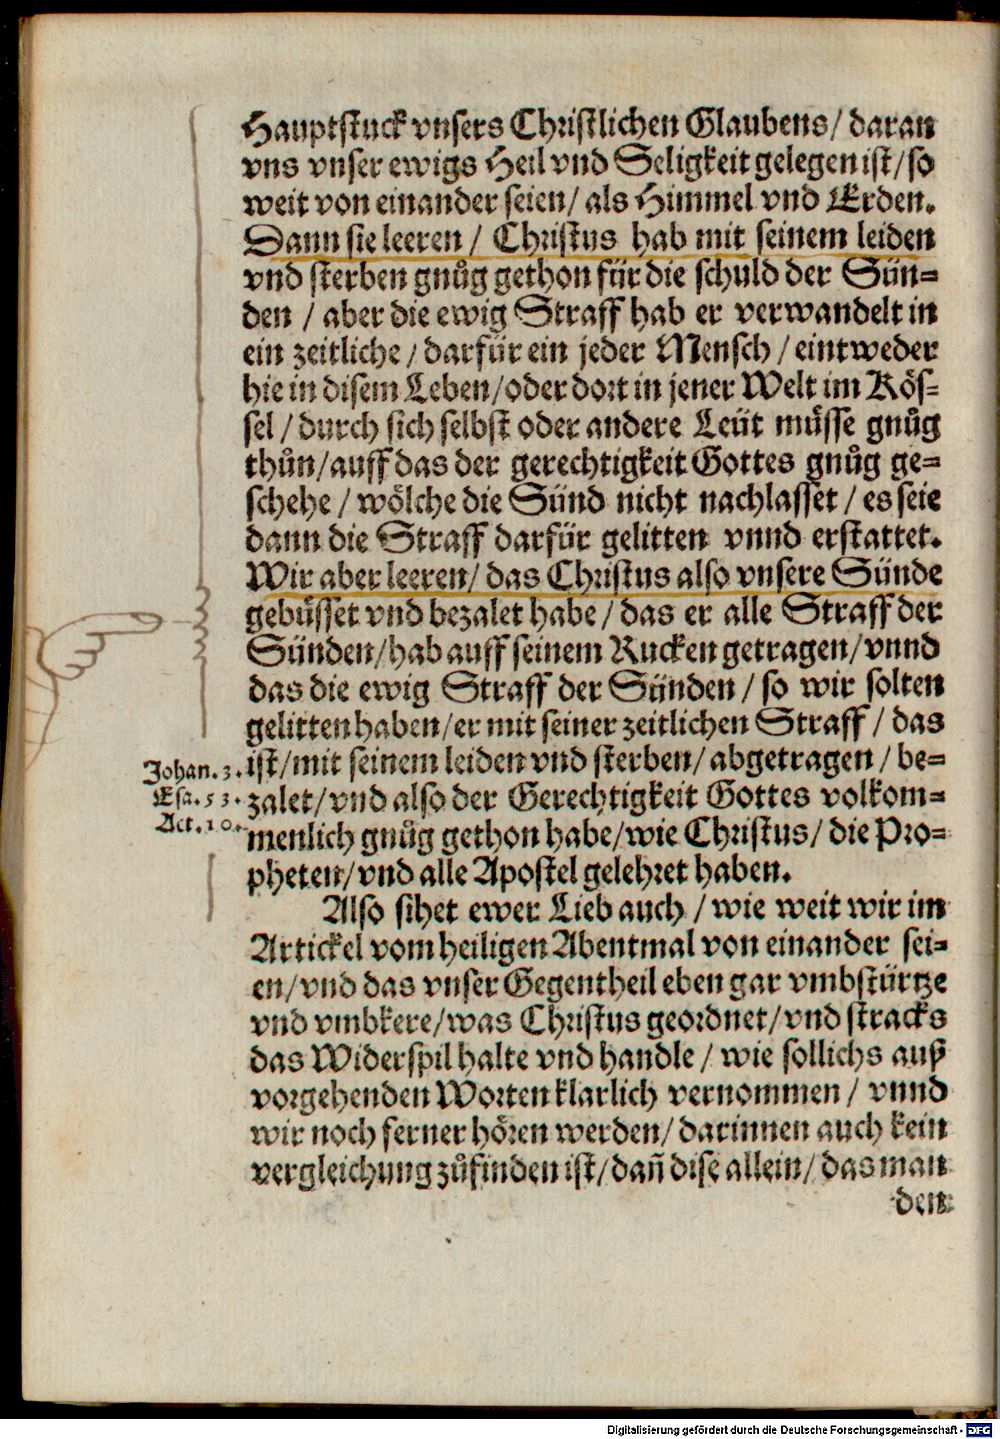 Hauptstuck vnsers Christlichen Glaubens/ daran
vns vnser ewigs Heil vnd Seligkeit gelegen ist/ so
weit von einander seien/ als Himmel vnd Erden.
Dann sie leeren / Christus hab mit seinem leiden
vnd sterben gnůg gethon für die schuld der Sün=
den / aber die ewig Straff hab er verwandelt in
ein zeitliche / darfür ein jeder Mensch / eintweder
hie in disem Leben/ oder dort in jener Welt im Kös=
sel / durch sich selbst oder andere Leüt müsse gnůg
thůn/ auff das der gerechtigkeit Gottes gnůg ge=
schehe / wölche die Sünd nicht nachlasset / es seie
dann die Straff darfür gelitten vnnd erstattet.
Wir aber leeren/ das Christus also vnsere Sünde
gebüsset vnd bezalet habe / das er alle Straff der
Sünden/ hab auff seinem Rucken getragen/ vnnd
das die ewig Straff der Sünden / so wir solten
gelitten haben/ er mit seiner zeitlichen Straff / das
Johan. 3. ist/ mit seinem leiden vnd sterben/ abgetragen / be=
Esa. 53. zalet/ vnd also der Gerechtigkeit Gottes volkom=
Act. 10. menlich gnůg gethon habe/ wie Christus/ die Pro=
pheten/ vnd alle Apostel gelehret haben.
Also sihet ewer Lieb auch / wie weit wir im
Artickel vom heiligen Abentmal von einander sei=
en/ vnd das vnser Gegentheil eben gar vmbstürtze
vnd vmbkere/ was Christus geordnet/ vnd stracks
das Widerspil halte vnd handle / wie sollichs auß
vorgehenden Worten klarlich vernommen / vnnd
wir noch ferner hören werden/ darinnen auch kein
vergleichung zůfinden ist/ dañ dise allein/ das man
den
Digitalisierung gefördert durch die Deutsche Forschungsgemeinschaft - DFG